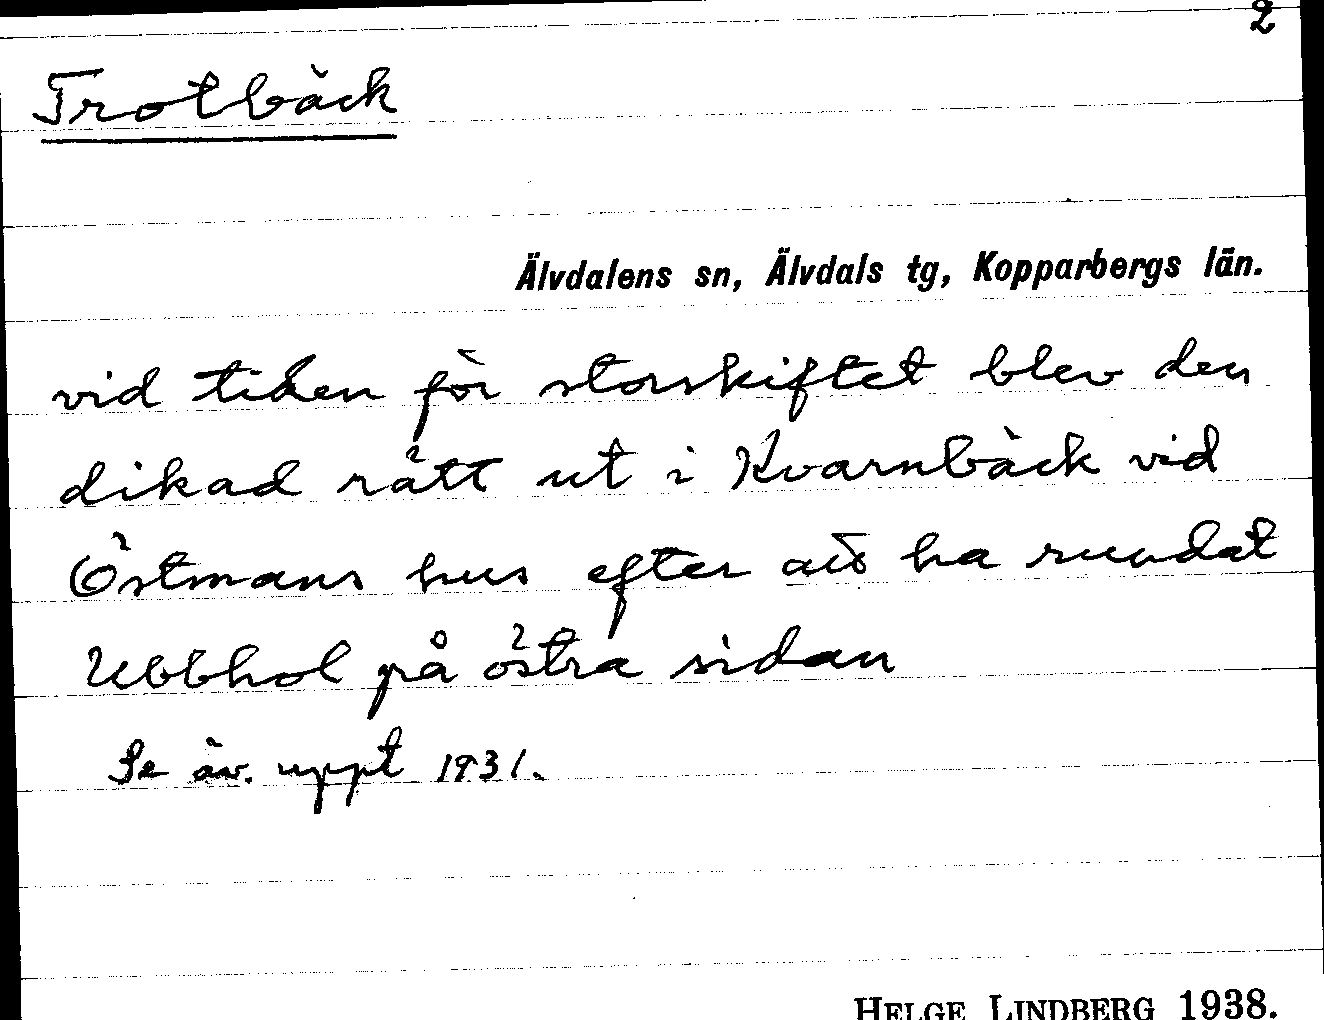 2
Trotbäck
Älvdalens sn, Älvdals tg, Kopparbergs län.
vid tiden för storskiftet blev den
dikad rätt ut i Kvarnbäck vid
Östmans hus efter att ha rundat
Ubbhol på östra sidan
Se äv. uppt 1931.
HELGE LINDBERG 1938.